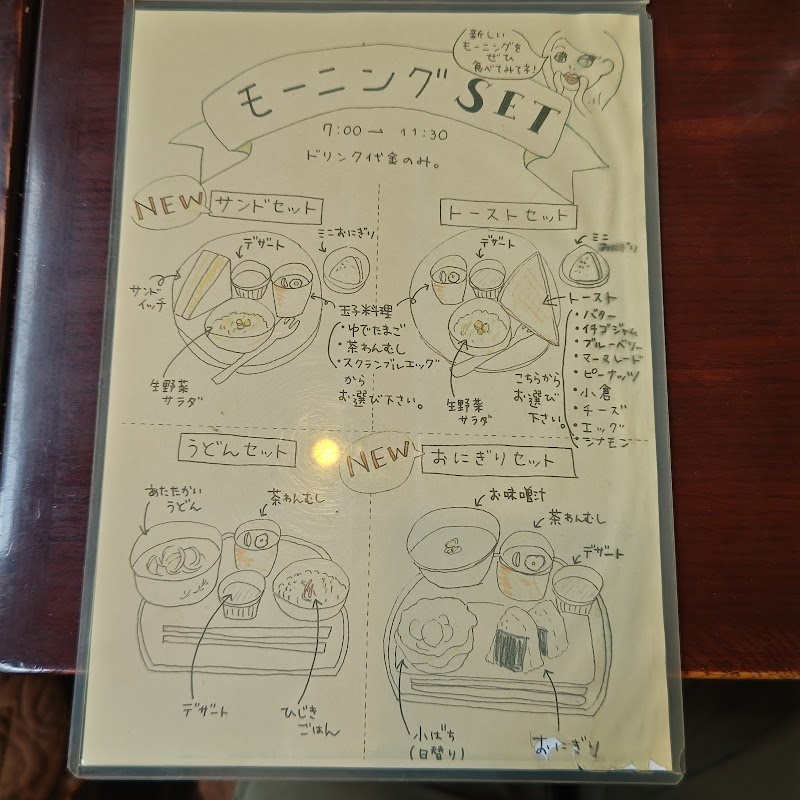 新しい
モーニングを
ぜひ
食べてみてネ!
モーニングSET
7:00→11:30
ドリンク代金のみ。
NEW
サンドセット
デザート
ミニおにぎり
サンド
イッチ
生野菜
サラダ
玉子料理
・ゆでたまご
・茶わんむし
・スクランブルエッグ
から
お選び下さい。
トーストセット
デザート
ミニ
おにぎり
トースト
・バター
・イチゴジャム
・ブルーベリー
・マーマレード
・ピーナッツ
・小倉
・チーズ
・エッグ
・シナモン
こちらから
お選び
下さい。
生野菜
サラダ
うどんセット
あたたかい
うどん
茶わんむし
デザート
ひじき
ごはん
NEW
おにぎりセット
お味噌汁
茶わんむし
デザート
小ばち
(日替り)
おにぎり